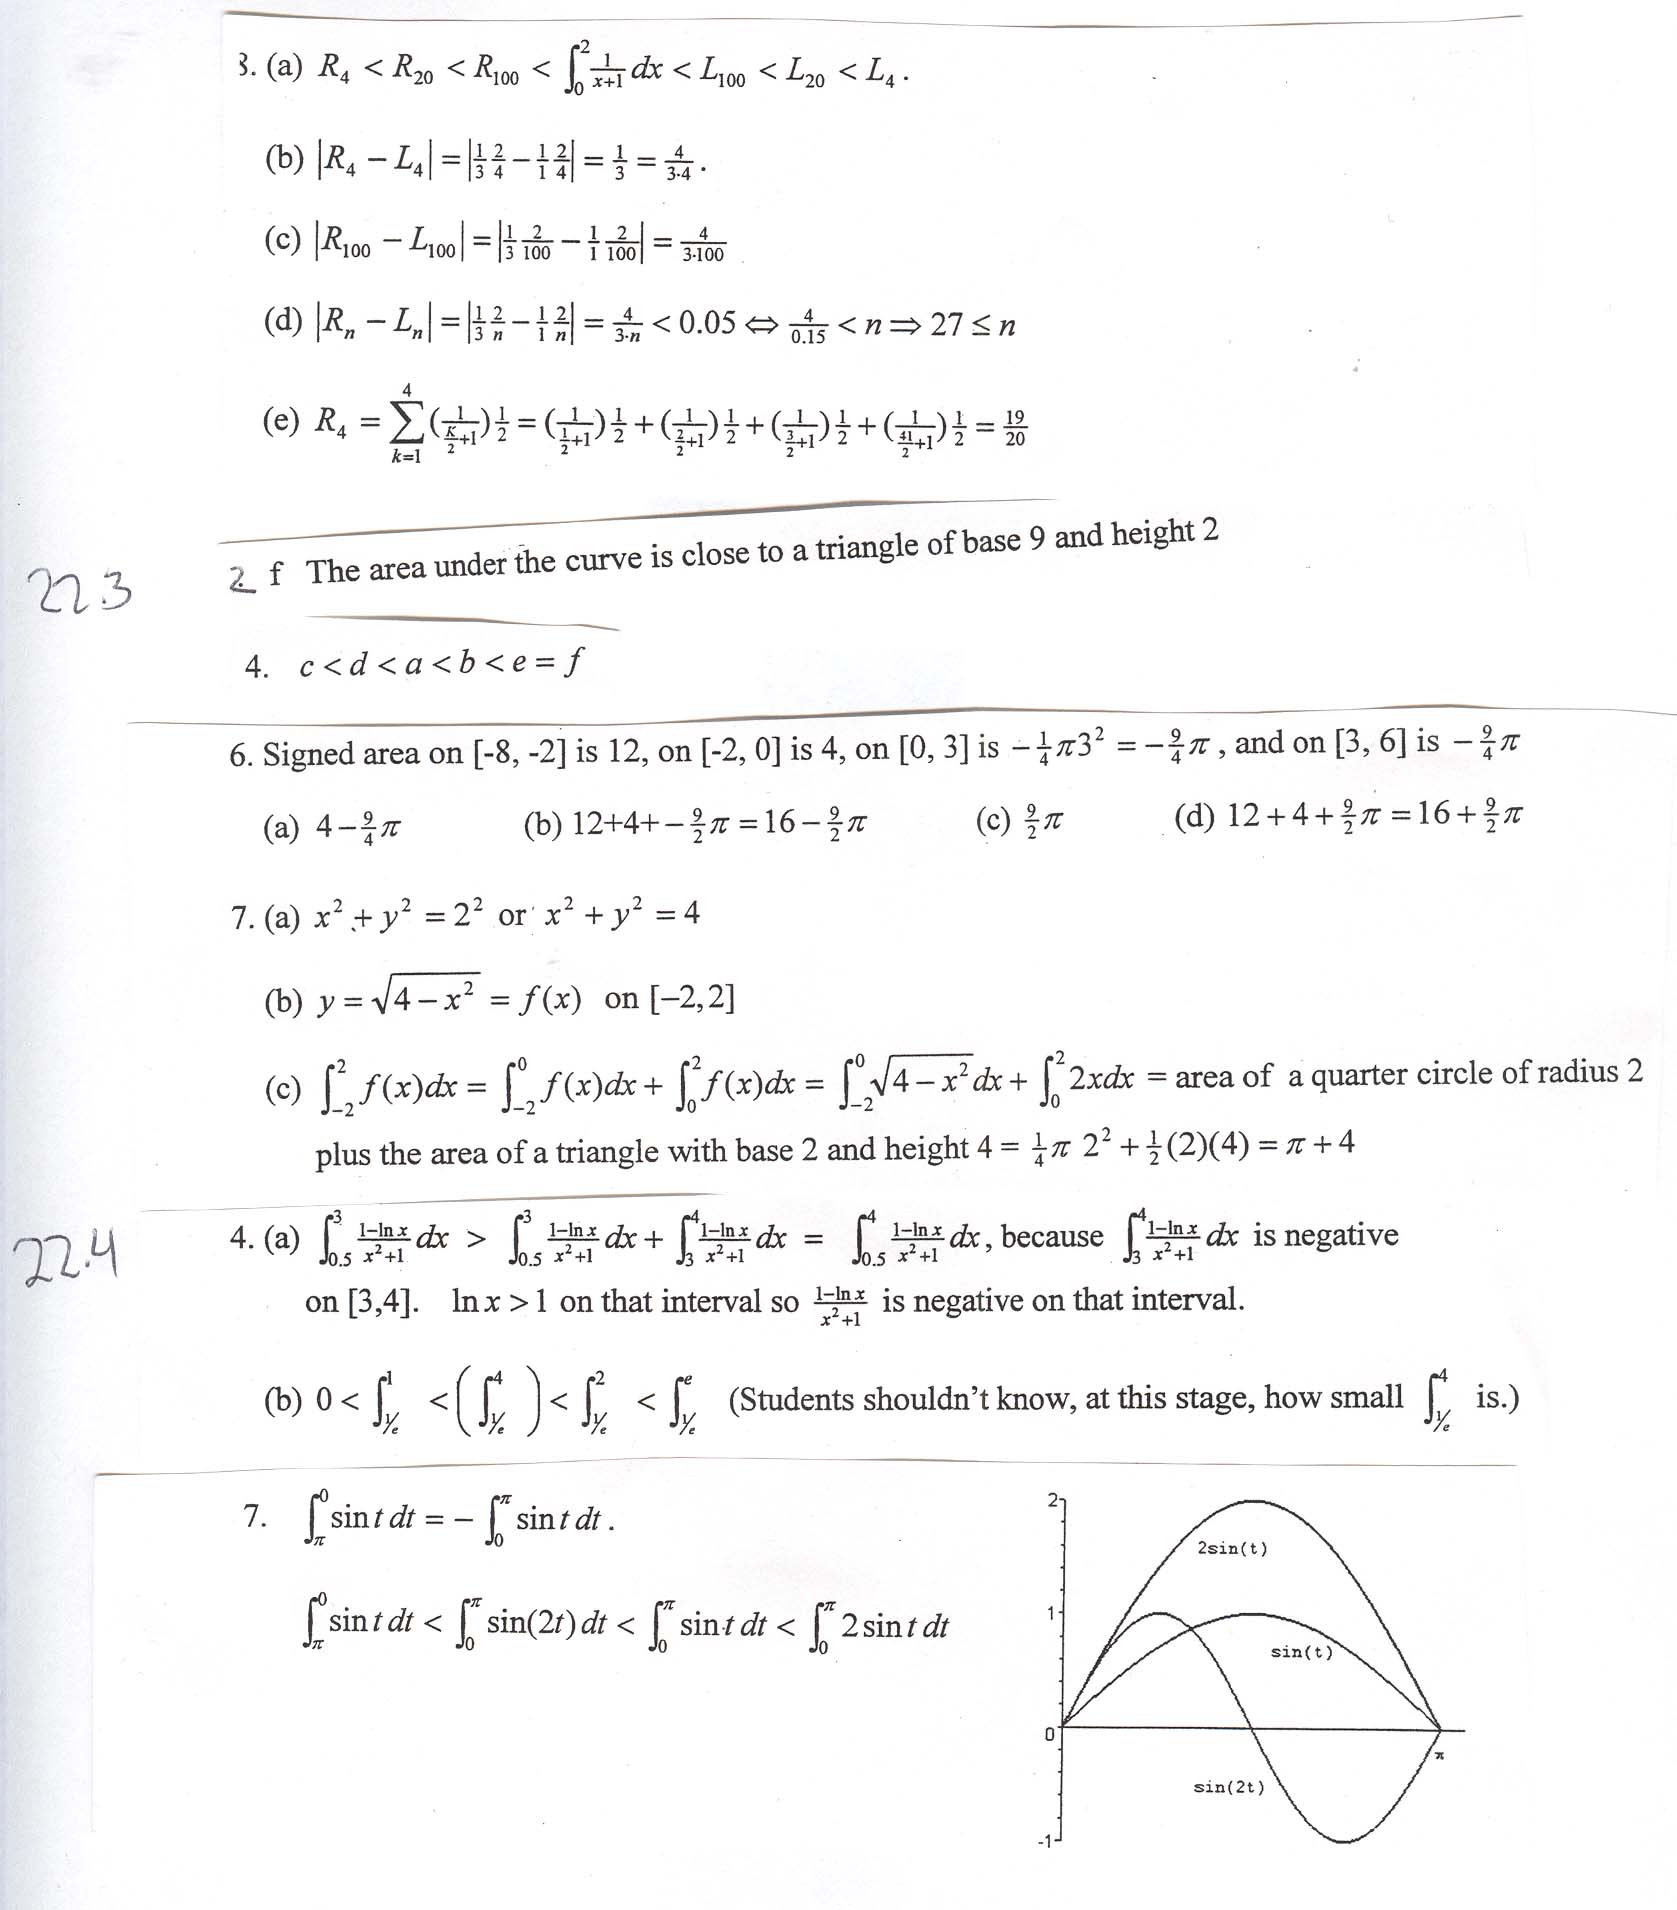 3. (a) R₄ < R₂₀ < R₁₀₀ < ∫₀² 1/(x+1) dx < L₁₀₀ < L₂₀ < L₄.
(b) |R₄ − L₄| = |1/3 2/4 − 1/1 2/4| = 1/3 = 4/(3·4).
(c) |R₁₀₀ − L₁₀₀| = |1/3 2/100 − 1/1 2/100| = 4/(3·100)
(d) |Rₙ − Lₙ| = |1/3 2/n − 1/1 2/n| = 4/(3·n) < 0.05 ⇔ 4/0.15 < n ⇒ 27 ≤ n
(e) R₄ = ∑_{k=1}^{4} (1/(K/2+1)) 1/2 = (1/(1/2+1)) 1/2 + (1/(2/2+1)) 1/2 + (1/(3/2+1)) 1/2 + (1/(41/2+1)) 1/2 = 19/20
22.3
2 f The area under the curve is close to a triangle of base 9 and height 2
4. c < d < a < b < e = f
6. Signed area on [-8, -2] is 12, on [-2, 0] is 4, on [0, 3] is −1/4 π3² = −9/4 π, and on [3, 6] is −9/4 π
(a) 4 − 9/4 π (b) 12+4+−9/2 π = 16 − 9/2 π (c) 9/2 π (d) 12 + 4 + 9/2 π = 16 + 9/2 π
7. (a) x² + y² = 2² or x² + y² = 4
(b) y = √(4 − x²) = f(x) on [−2,2]
(c) ∫₋₂² f(x)dx = ∫₋₂⁰ f(x)dx + ∫₀² f(x)dx = ∫₋₂⁰ √(4 − x²) dx + ∫₀² 2xdx = area of a quarter circle of radius 2
plus the area of a triangle with base 2 and height 4 = 1/4 π 2² + 1/2 (2)(4) = π + 4
22.4
4. (a) ∫_{0.5}^{3} (1−ln x)/(x²+1) dx > ∫_{0.5}^{3} (1−ln x)/(x²+1) dx + ∫₃⁴ (1−ln x)/(x²+1) dx = ∫_{0.5}^{4} (1−ln x)/(x²+1) dx, because ∫₃⁴ (1−ln x)/(x²+1) dx is negative
on [3,4]. ln x > 1 on that interval so (1−ln x)/(x²+1) is negative on that interval.
(b) 0 < ∫_{1/e}^{1} < (∫_{1/e}^{4}) < ∫_{1/e}^{2} < ∫_{1/e}^{e} (Students shouldn't know, at this stage, how small ∫_{1/e}^{4} is.)
7. ∫_π^0 sin t dt = − ∫_0^π sin t dt.
∫_π^0 sin t dt < ∫_0^π sin(2t) dt < ∫_0^π sin t dt < ∫_0^π 2 sin t dt
2
2sin(t)
1
sin(t)
0
π
sin(2t)
-1